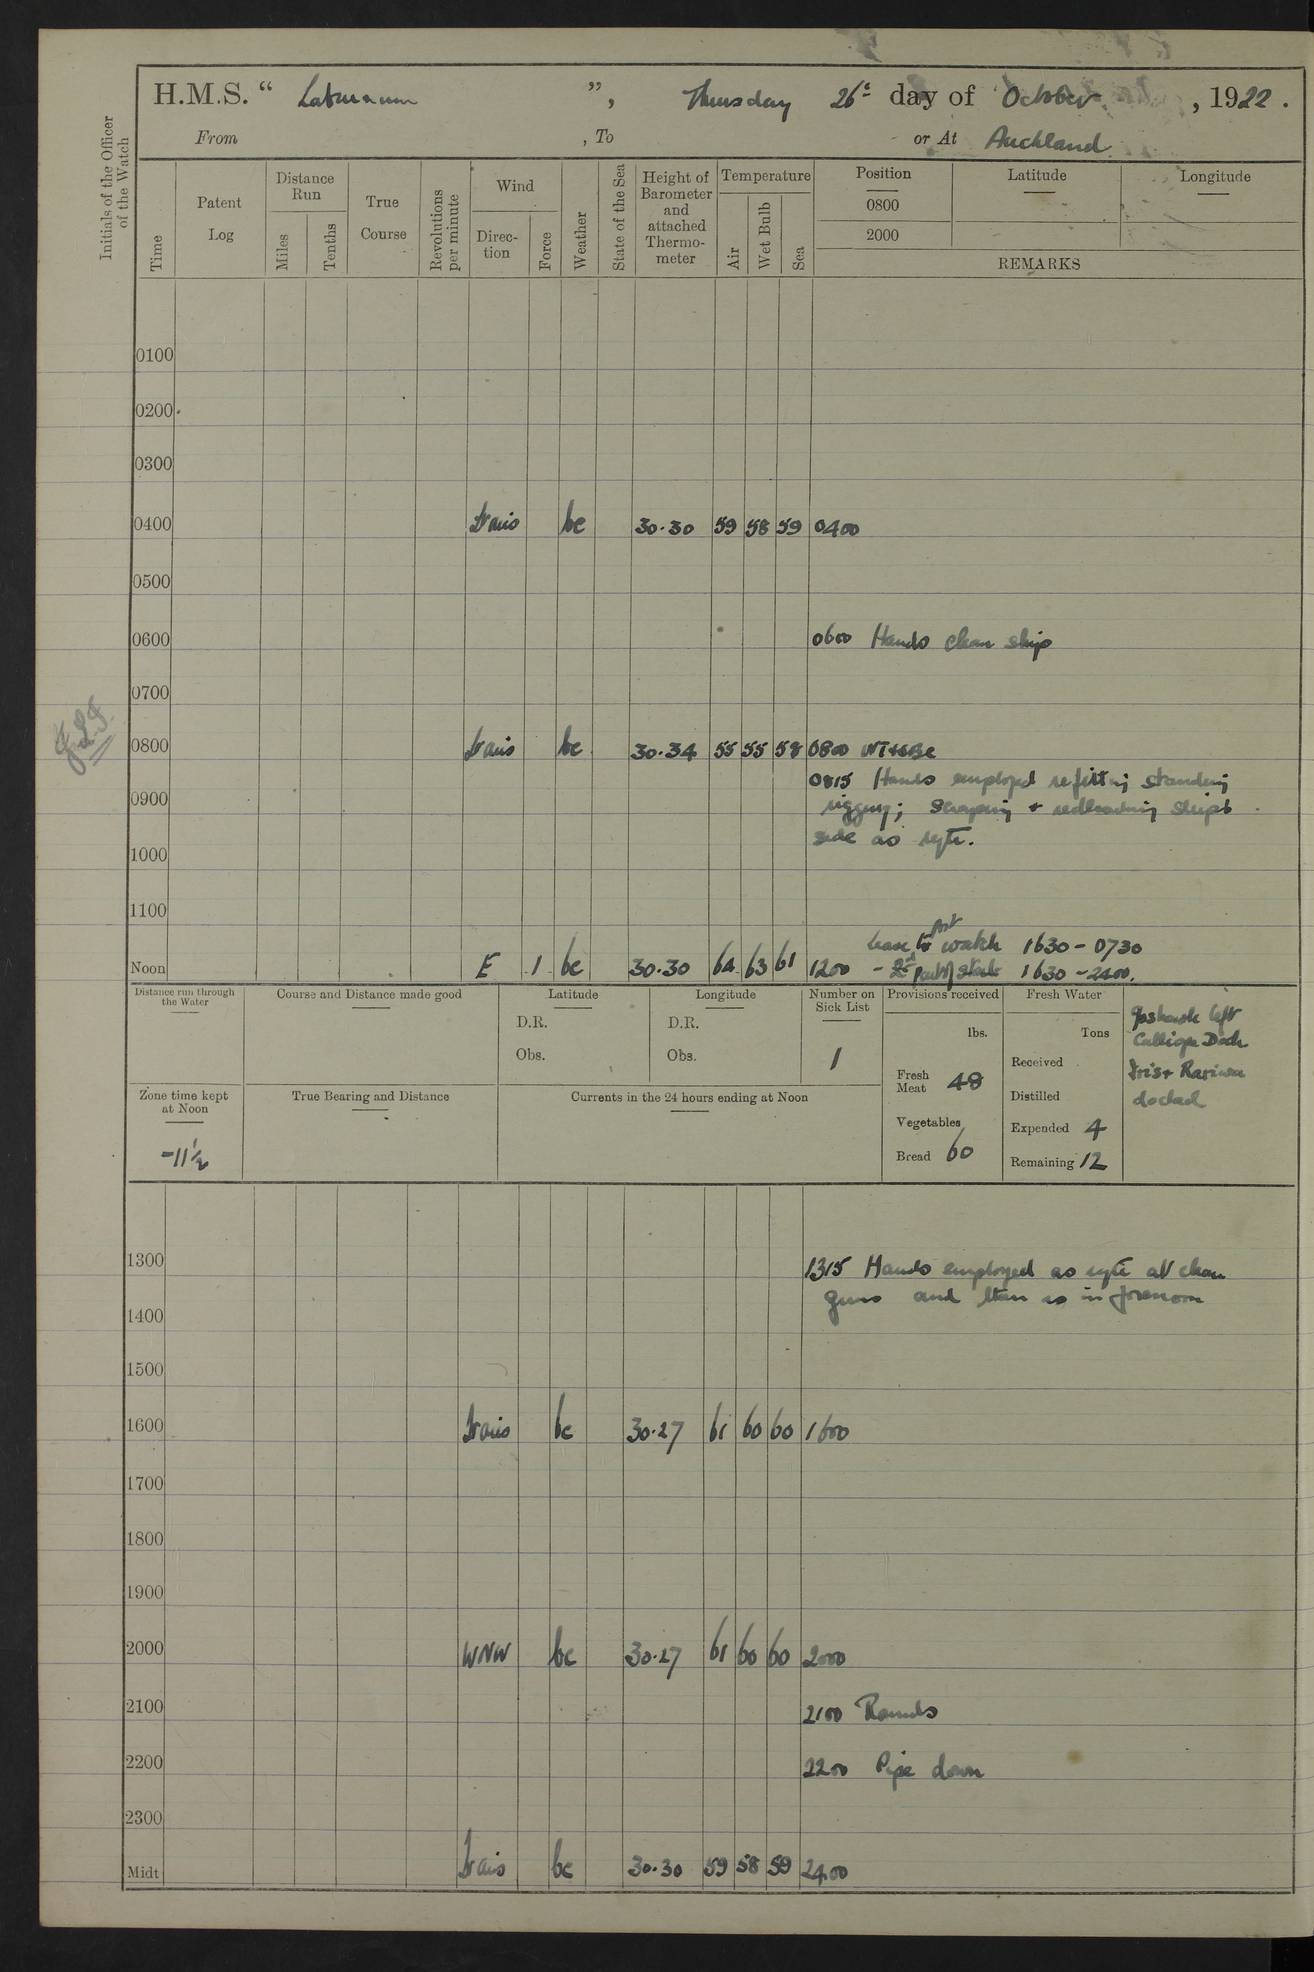 H.M.S. “ Laburnum ”, Thursday 26th day of October, 1922.
From , To or At Auckland
Initials of the Officer of the Watch
Time
Patent Log
Distance Run
Miles
Tenths
True Course
Revolutions per minute
Wind
Direction
Force
Weather
State of the Sea
Height of Barometer and attached Thermometer
Temperature
Air
Wet Bulb
Sea
Position Latitude Longitude
0800
2000
REMARKS
0100
0200
0300
0400 bc 30.30 59 58 59 0400
0500
0600 0600 Hands clean ship
0700
J.L.F.
0800 bc 30.34 55 55 58 0800
0815 Hands employed refitting standing
0900 rigging; scraping + redleading ship's
side as
1000
1100
Leave to Port watch 1630 - 0730
Noon E 1 bc 30.30 64 63 61 1200 - 2nd part of Starb 1630 - 2400.
Distance run through the Water
Course and Distance made good
Latitude
D.R.
Obs.
Longitude
D.R.
Obs.
Number on Sick List
1
Provisions received
lbs.
Fresh Meat 48
Vegetables
Bread 60
Fresh Water
Tons
Received
Distilled
Expended 4
Remaining 12
left
Calliope Dock
docked
Zone time kept at Noon
-11½
True Bearing and Distance
Currents in the 24 hours ending at Noon
1300 1315 Hands employed as at clean
guns and as in forenoon
1400
1500
1600 bc 30.27 61 60 60 1600
1700
1800
1900
2000 WNW bc 30.27 61 60 60 2000
2100 2100 Rounds
2200 2200 Pipe down
2300
Midt bc 30.30 59 58 59 2400